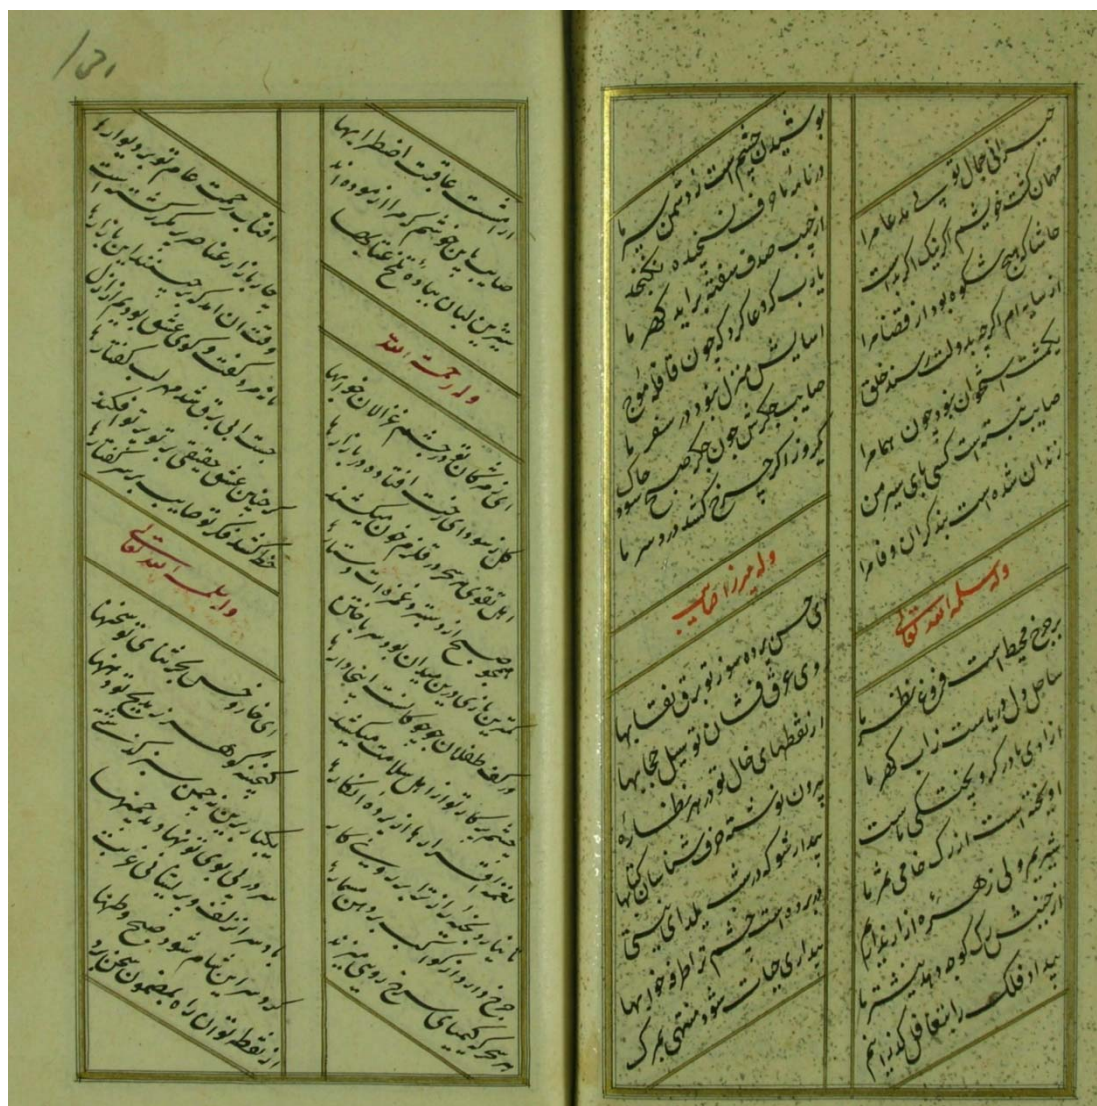 حیرانی جمال تو پی بدعا مرا
مهمان کشت خویشم اکر نیک اکر بد است
حاشا که هیچ شکوه بود از قضا مرا
از سایه ام اکر چه بدولت رسند خلق
یکمشت استخوان بنود چون هما مرا
صایب نبسته است کسی پای سیر من
زندان شده است بند کران وفا مرا
وله سلمه الله تعالی
بر چرخ محیط است فروغ نظر ما
ساحل دل دریاست ز اب کهر ما
ازادی ما در کرو پختکی ماست
اویخته است از رک خامی ثمر ما
شیریم ولی زهره ازار نداریم
از جنبش رک کوچه دهد نیشتر ما
بیداد فلک را بتغافل کذرانیم
پوشیدن چشم است ز دشمن سپر ما
در نامه ما حرف نسنجیده نکنجد
از جیب صدف سفته براید کهر ما
یارب که دعا کرد که چون قافله موج
اسایش منزل نبود در سفر ما
صایب جکرش چون جکر صبح شود چاک
یکروز اکر چرخ کشد درد سر ما
وله میرزا صایب
ای حسن پرده سوز تو برق نقابها
روی عرق فشان تو سیل حجابها
از نقطهای خال تو در هر نظاره
بیرون نوشته حرف شناسان کتابها
بیدار شو که در شب یلدای نیستی
در پرده است چشم ترا طرفه خوابها
بیداری حیات شود منتهی بمرک
ارامشست عاقبت اضطرابها
صایب باین خوشم که مرا ازموده اند
شیرین لبان بباده تلخ عتابها
وله رحمت الله
ای مژکان تو در چشم غزالان خوابها
کل ز سودای رخت افتاده در بازارها
اهل تقوی هر سحر در قلزم خون میکشند
همچو صبح از دست غمزه ات دستارها
کمترین بازی درین میدان بود سر باختن
در کف طفلان چو چوکانست اینجا دارها
چشم پر کار تو از اهل سلامت میکشد
نغمه اقرارها از پرده انکارها
تا نیارد بخیه راز ترا بر روی کار
چرخ دارد از کواکب بر دهن مسمارها
هر سحر که کیمیای سرخ رویی میزند
افتاب رحمت عام تو بر دیوارها
چار بازار عناصر پر مکرر کشته است
وقت ان امد که برچینند این بازارها
ما ز مرد کفت و کوی عشق بودیم از ازل
جست ابی برق شد مهر لب کفتارها
کر چنین عشق حقیقی پرتو بر تو افکند
خط کشد فکر تو صایب بر سر کفتارها
وله سلمه الله تعالی
ای خار و خس بحر ثنای تو سخنها
کنجینه کوهر ز مدیح تو دهنها
یکبار برین نه چمن سبز کذشتی
سر در پی بوی تو نهادند چمنها
باد سر از زلف پریشانی غربت
کردسر این شام شود صبح وطنها
از نقطه توان راه بمضمون سخن برد